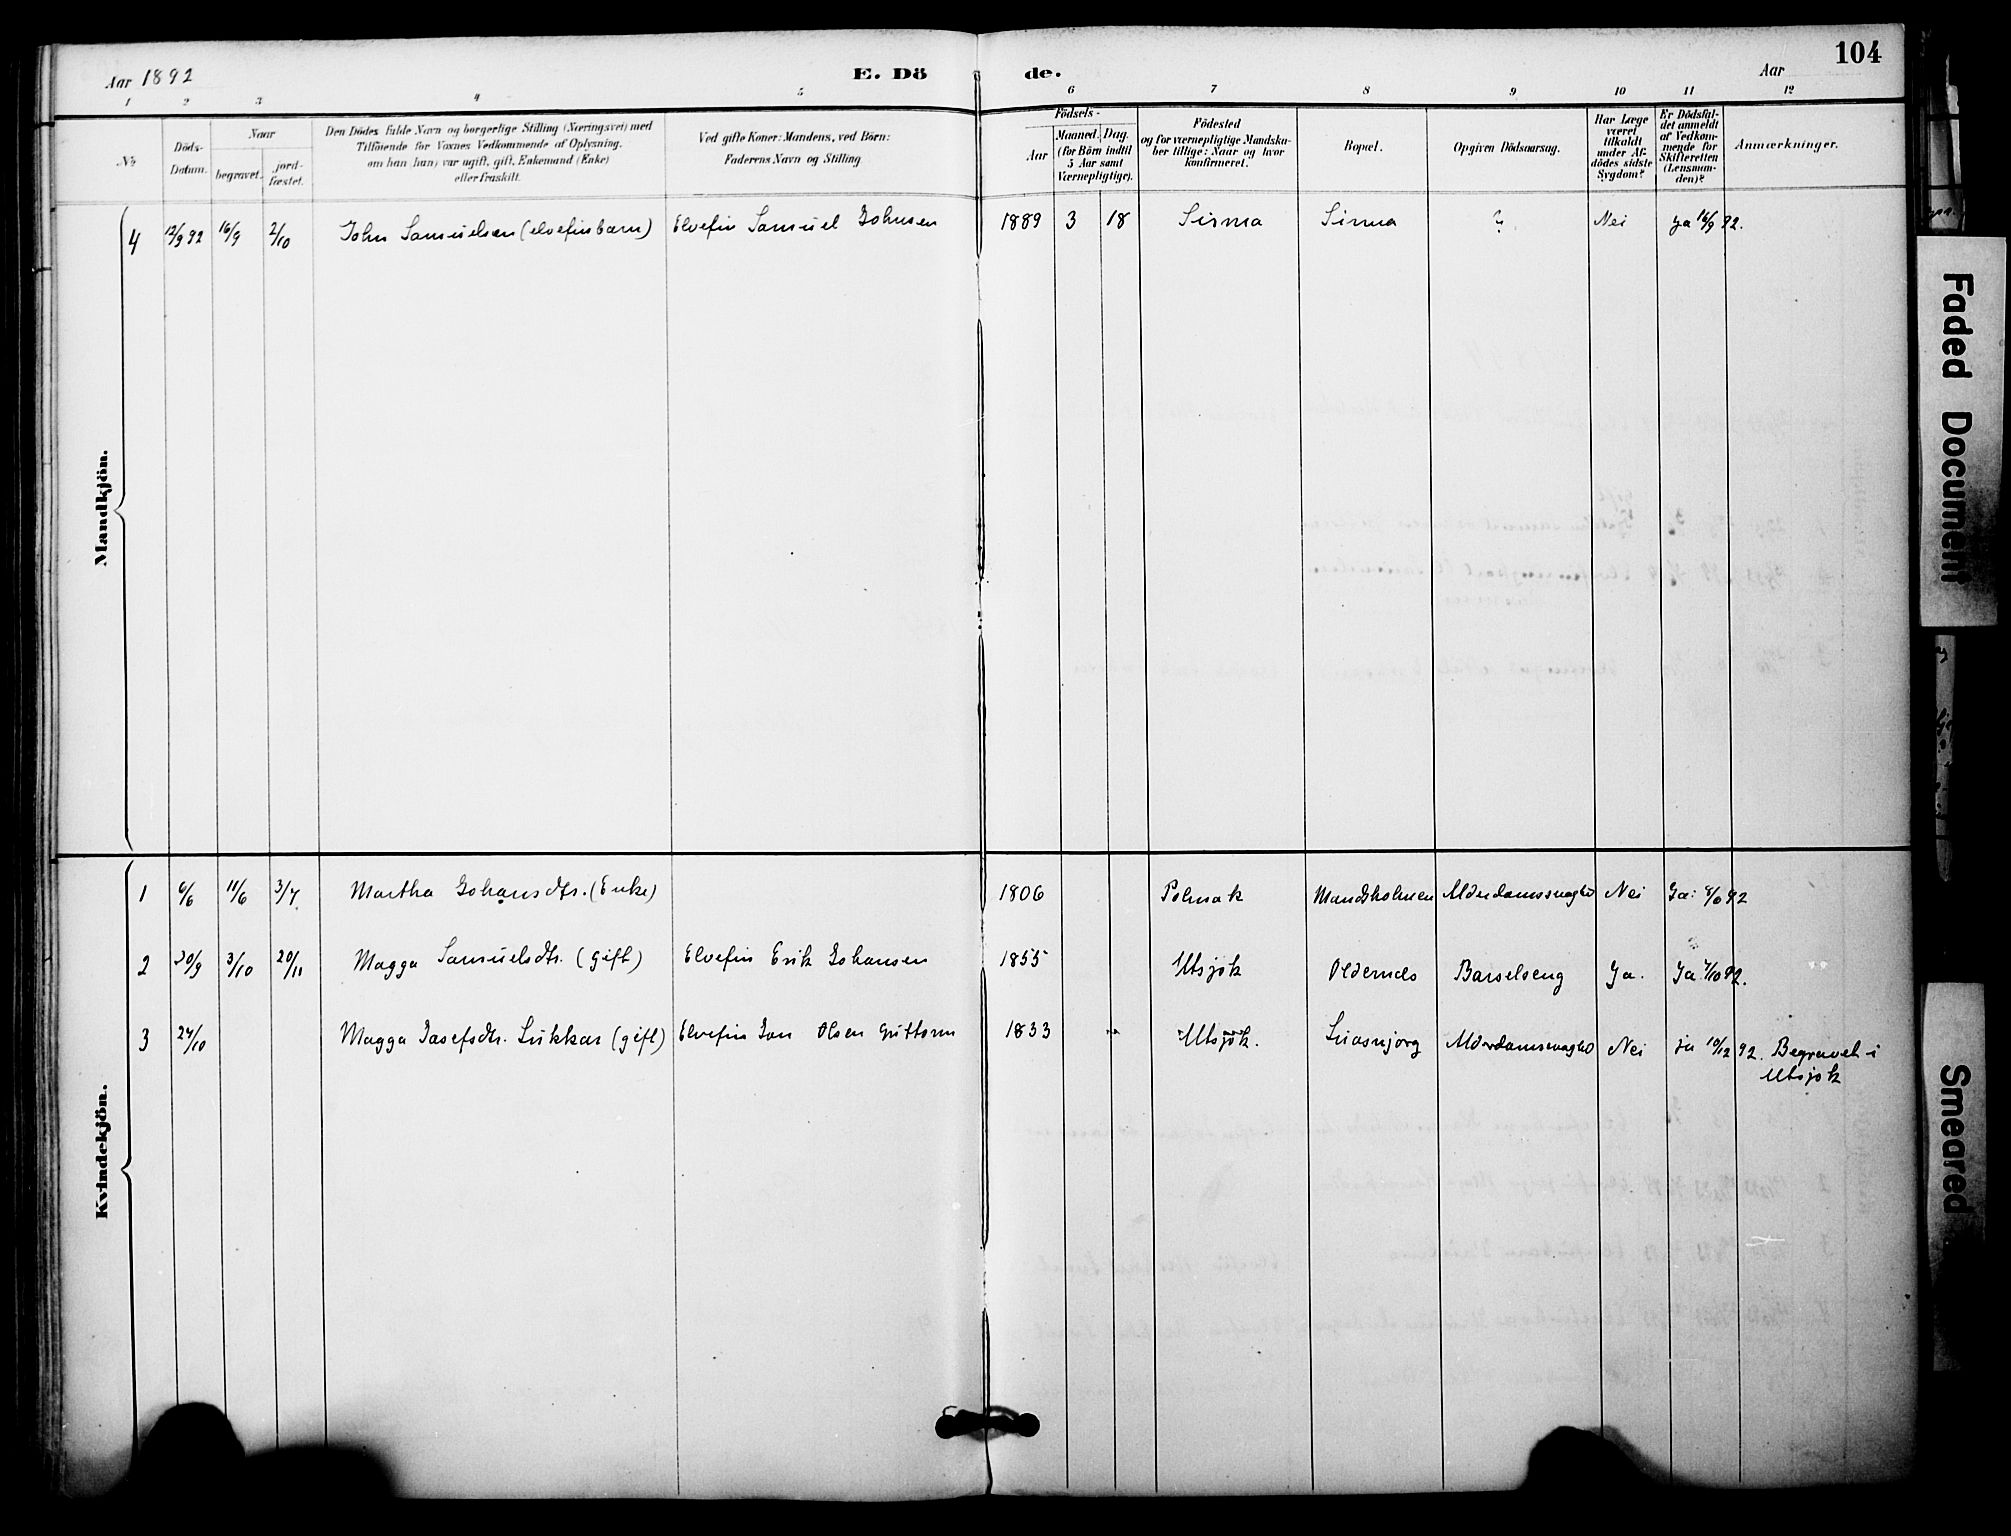 104
Aar 1892
E. Dö de.
Aar
1 2 3 4 5 6 7 8 9 10 11 12
No
Döds-Datum.
Naar
begravet.
jord-fæstet.
Den Dödes fulde Navn og borgerlige Stilling (Næringsvei) med
Tilföiende for Voxnes Vedkommende af Oplysning,
om han (hun) var ugift, gift, Enkemand (Enke)
eller fraskilt.
Ved gifte Koner: Mandens, ved Börn:
Faderens Navn og Stilling.
Födsels-
Aar
Maaned. Dag.
(for Börn indtil
5 Aar samt
Værnepligtige).
Födested
og for værnepligtige Mandska-
ber tillige: Naar og hvor
konfirmeret.
Bopæl.
Opgiven Dödsaarsag.
Har Læge
været
tilkaldt
under Af-
dödes sidste
Sygdom?
Er Dödsfal-
det anmeldt
af Vedkom-
mende for
Skifteretten
(Lensman-
den)?
Anmærkninger.
Mandkjön.
4 12/9 92 16/9 2/10 John Samuelsen (elvefinbarn) Elvefin Samuel Johnsen 1889 3 18 Sirma Sirma ? Nei Ja 16/9 92.
Kvindekjön.
1 6/6 11/6 3/7 Martha Johansdtr. (Enke) 1806 Polmak Mandsholmen Alderdomssvaghd Nei Ja: 8/6 92
2 30/9 3/10 20/11 Magga Samuelsdtr. (gift) Elvefin Erik Johansen 1855 Utsjok Oldernes Barselseng Ja. Ja 7/10 92.
3 24/10 Magga Josefsdtr. Lukkar (gift) Elvefin Jon Olsen Guttorm 1833 Utsjok. Alderdomssvaghd Nei ja 10/12 92. Begravet i
Utsjok
Faded Document
Smeared